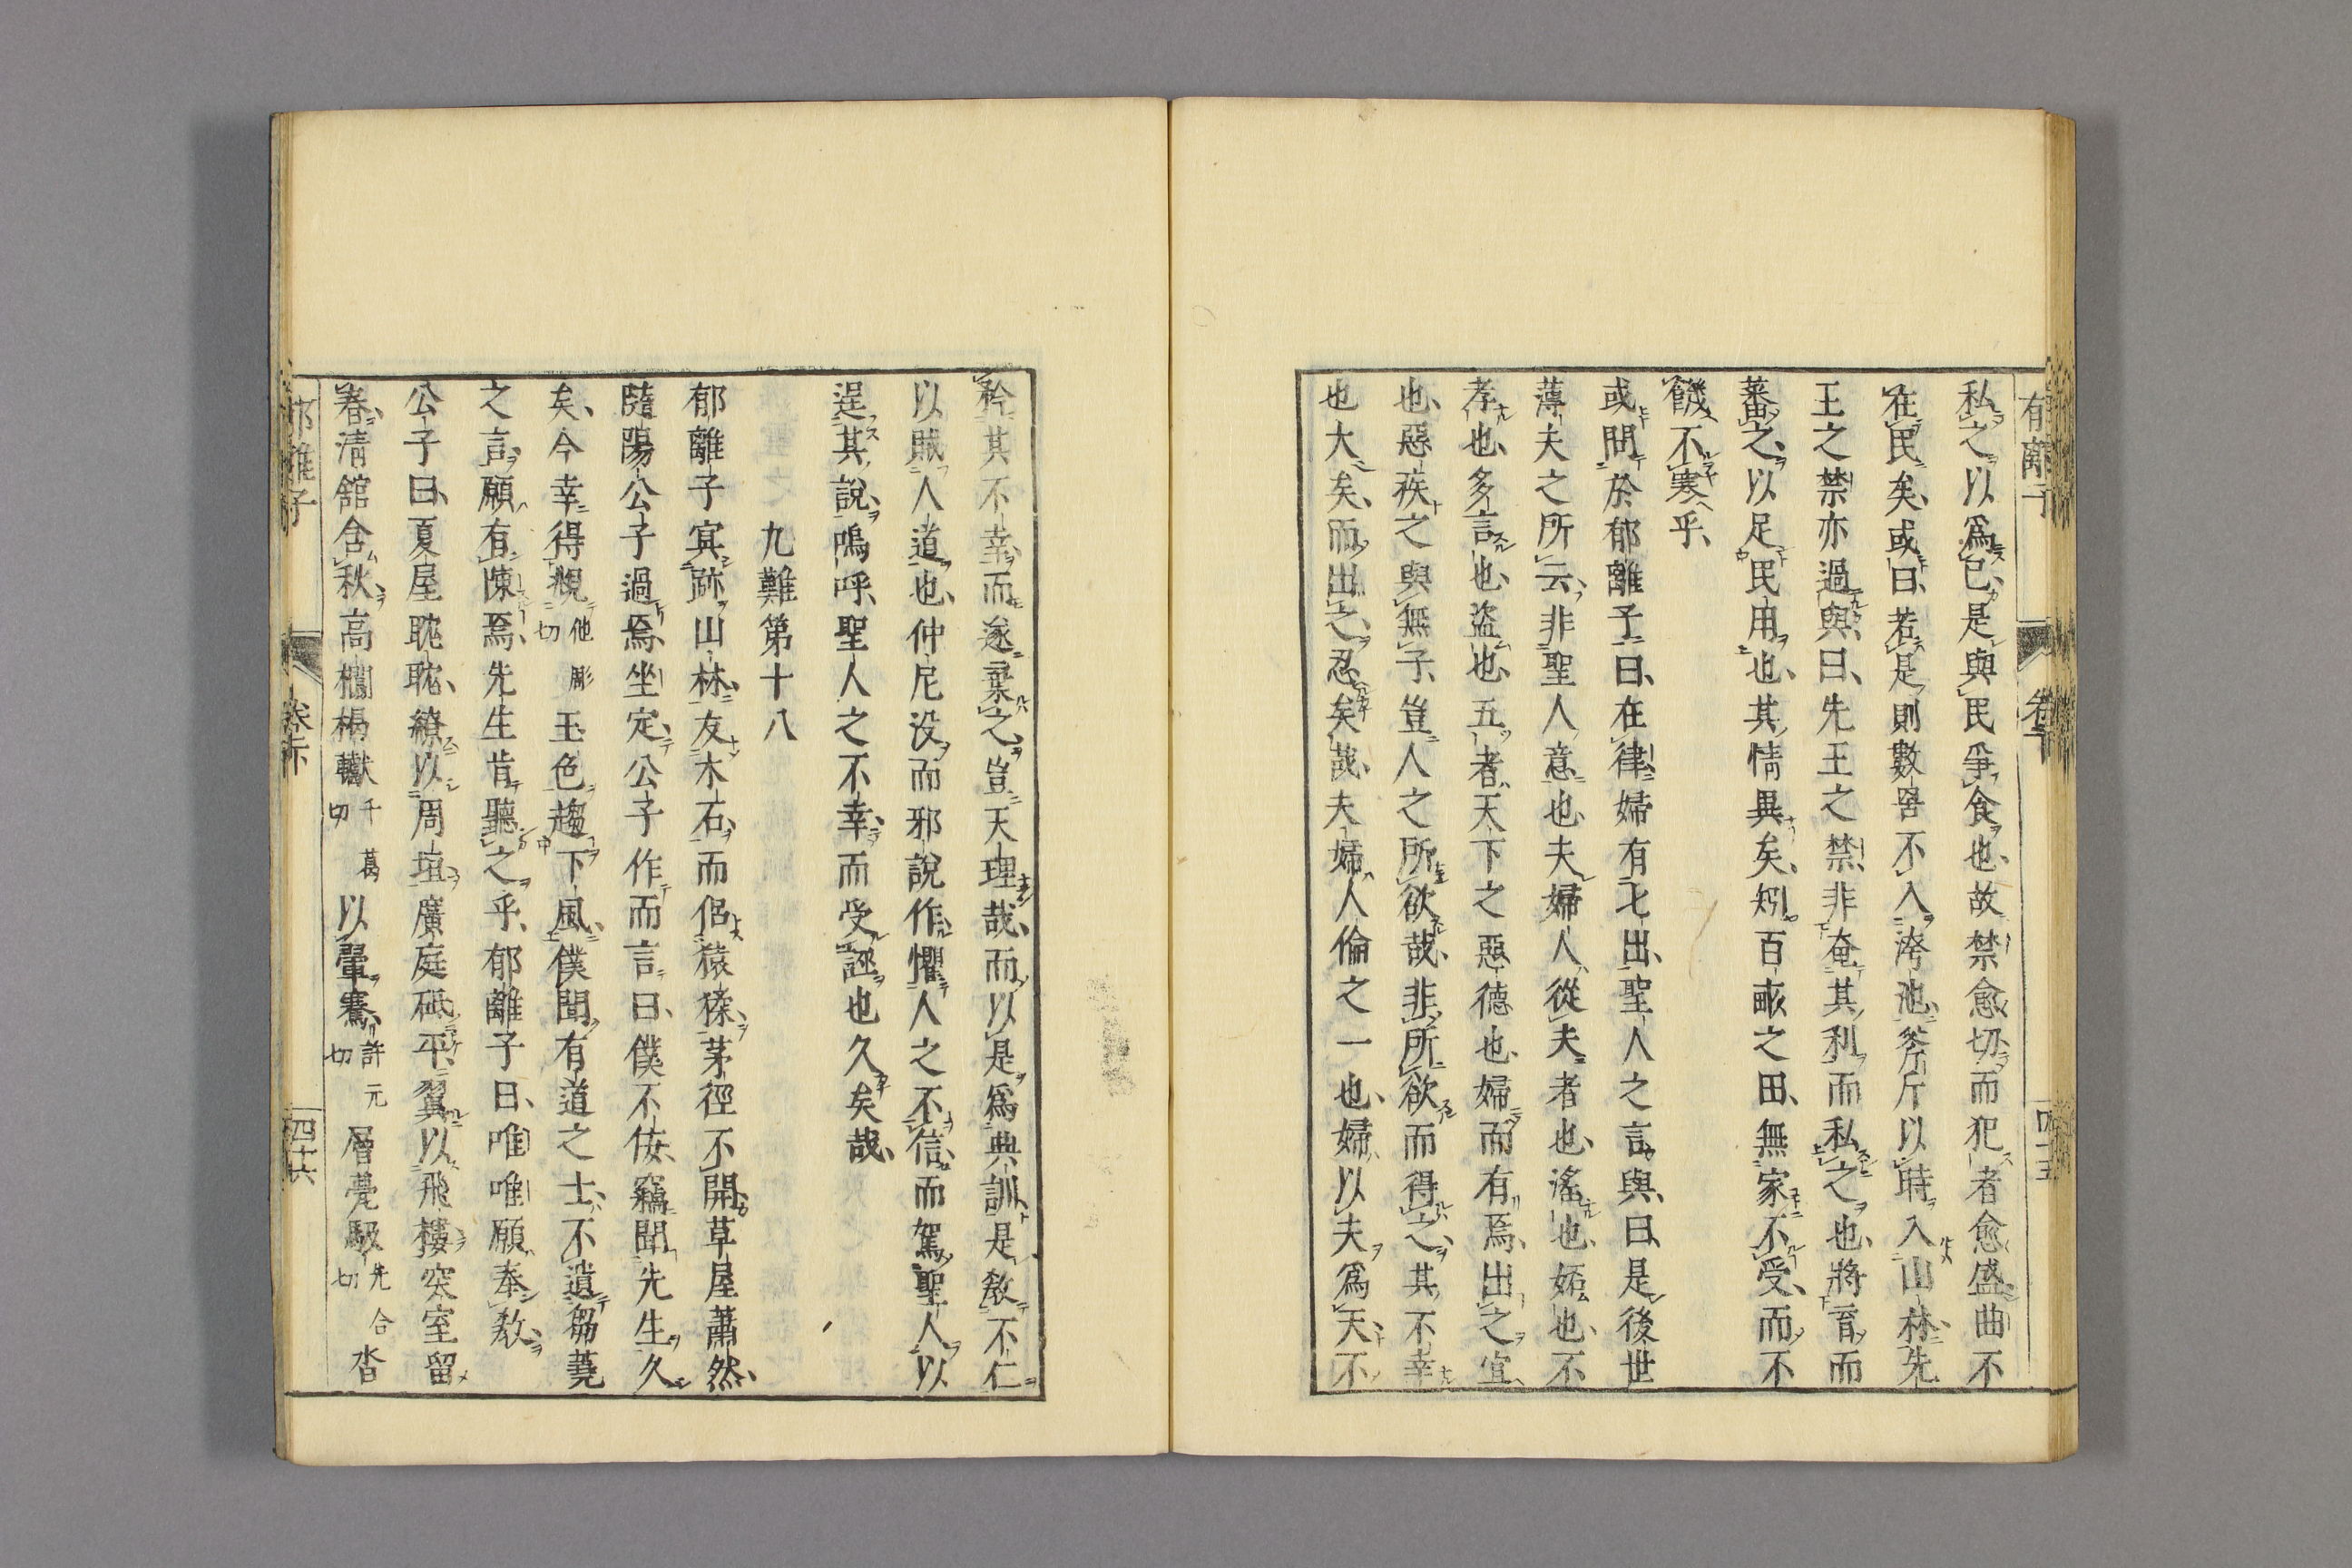 郁離子
卷下
四十五
私之以爲已是與民爭食也故禁愈切而犯者愈盛曲不
在民矣或曰若是則數罟不入洿池斧斤以時入山林先
王之禁亦過與曰先王之禁非奄其利而私之也將育而
蕃之以足民用也其情異矣矧百畞之田無家不受而不
饑不寒乎
或問於郁離子曰在律婦有七出聖人之言與曰是後世
薄夫之所云非聖人意也夫婦人從夫者也淫也妬也不
孝也多言也盜也五者天下之惡德也婦而有焉出之宜
也惡疾之與無子豈人之所欲哉非所欲而得之其不幸
也大矣而出之忍矣哉夫婦人倫之一也婦以夫爲天不
矜其不幸而遂棄之豈天理哉而以是爲典訓是敎不仁
以賊人道也仲尼没而邪說作懼人之不信而駕聖人以
逞其說嗚呼聖人之不幸而受誣也久矣哉
九難第十八
郁離子寘跡山林友木石而侶猿猱茅徑不開草屋蕭然
隨陽公子過焉坐定公子作而言曰僕不佞竊聞先生久
矣今幸得覜他彫切玉色趨下風僕聞有道之士不遺芻蕘
之言願有陳焉先生肯聽之乎郁離子曰唯唯願奉敎
公子曰夏屋耽耽繚以周垣廣庭砥平翼以飛樓突室留
春清舘含秋高櫩楬轥犬千葛切以翬騫許元切層甍馺先合切沓
郁離子
卷下
四十六